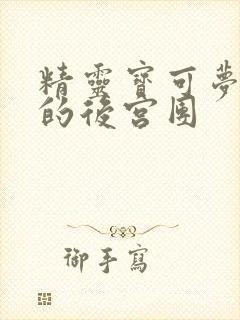 精靈寶可夢
的後宮團
御手寫